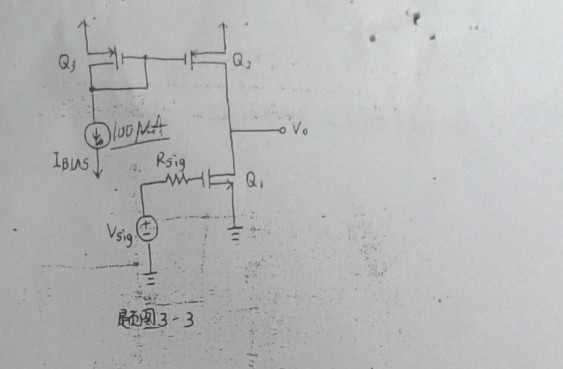 Q₃
Q₂
100μA
I_BIAS
V₀
Rsig
Q₁
Vsig
+
−
题图3-3